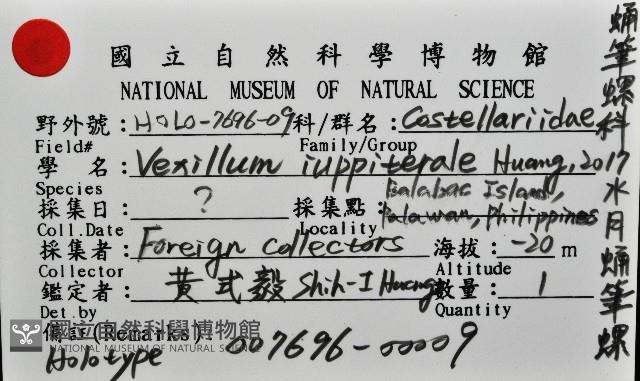 國立自然科學博物館
NATIONAL MUSEUM OF NATURAL SCIENCE
野外號:HOLO-7696-09 科/群名:Costellariidae
Field# Family/Group
學 名:Vexillum iuppiterale Huang, 2017
Species
採集日:? 採集點:Balabac Island, Palawan, Philippines
Coll.Date Locality
採集者:Foreign collectors 海拔:-20 m
Collector Altitude
鑑定者:黃式毅 Shih-I Huang 數量:1
Det.by Quantity
備註(Remarks)
Holotype 007696-00009
國立自然科學博物館
NATIONAL MUSEUM OF NATURAL SCIENCE
蛹筆螺科 水月蛹筆螺